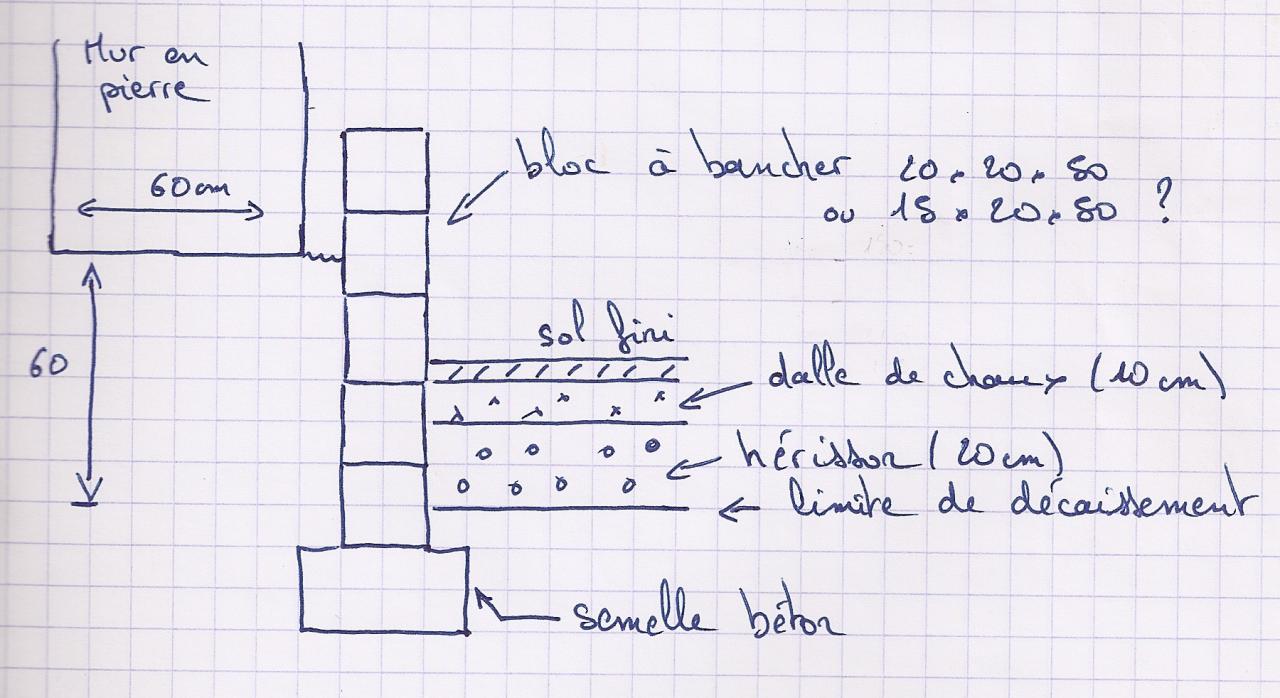 Mur en
pierre
60cm
bloc à bancher 20 × 20 × 50
ou 15 × 20 × 50 ?
sol fini
60
dalle de chaux (10 cm)
hérisson (20cm)
limite de décaissement
semelle béton